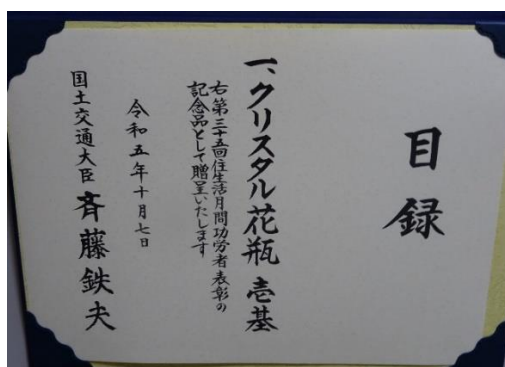 目録
一、クリスタル花瓶 壱基
右第三十五回住生活月間功労者表彰の
記念品として贈呈いたします
令和五年十月七日
国土交通大臣 斉藤鉄夫